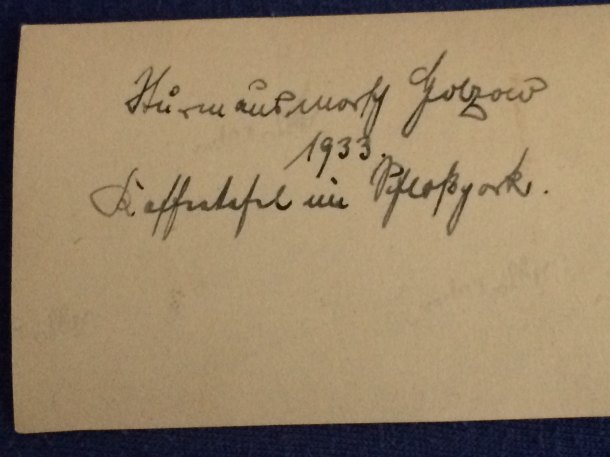 Sturmausmarsch Golzow
1933.
Kaffeetafel im Schloßpark.